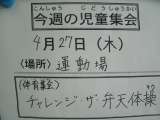 こんしゅう じどうしゅうかい
今週の児童集会
4月27日(木)
(場所) 運動場
(体育委員会)
チャレンジ・ザ・弁天体操